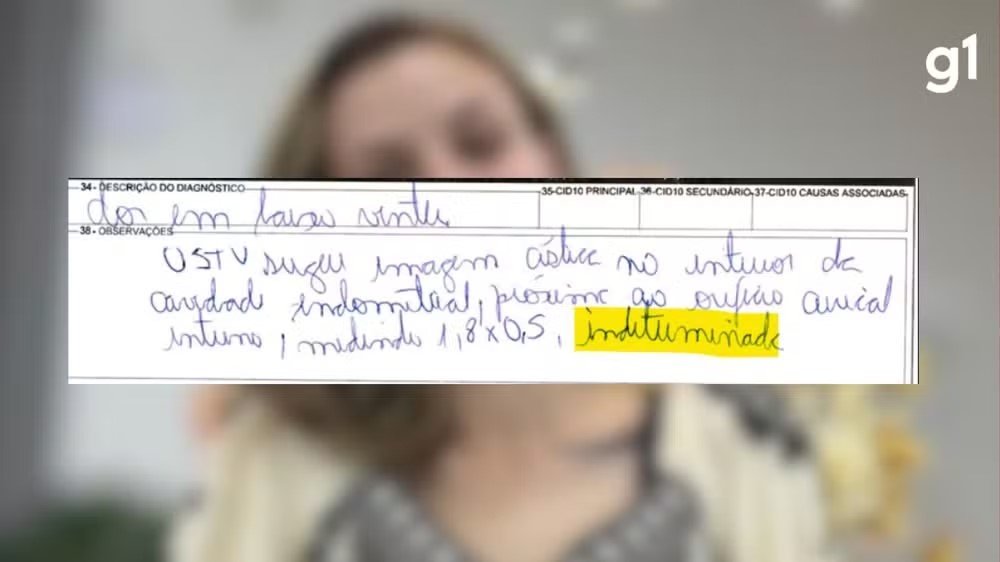 g1
34- DESCRIÇÃO DO DIAGNÓSTICO 35-CID10 PRINCIPAL 36-CID10 SECUNDÁRIO 37-CID10 CAUSAS ASSOCIADAS
dor em baixo ventre
38 - OBSERVAÇÕES
USTV sugeu imagem cística no interior da
cavidade endometrial, próximo ao orifício cervical
interno, medindo 1,8 x 0,5, indeterminada